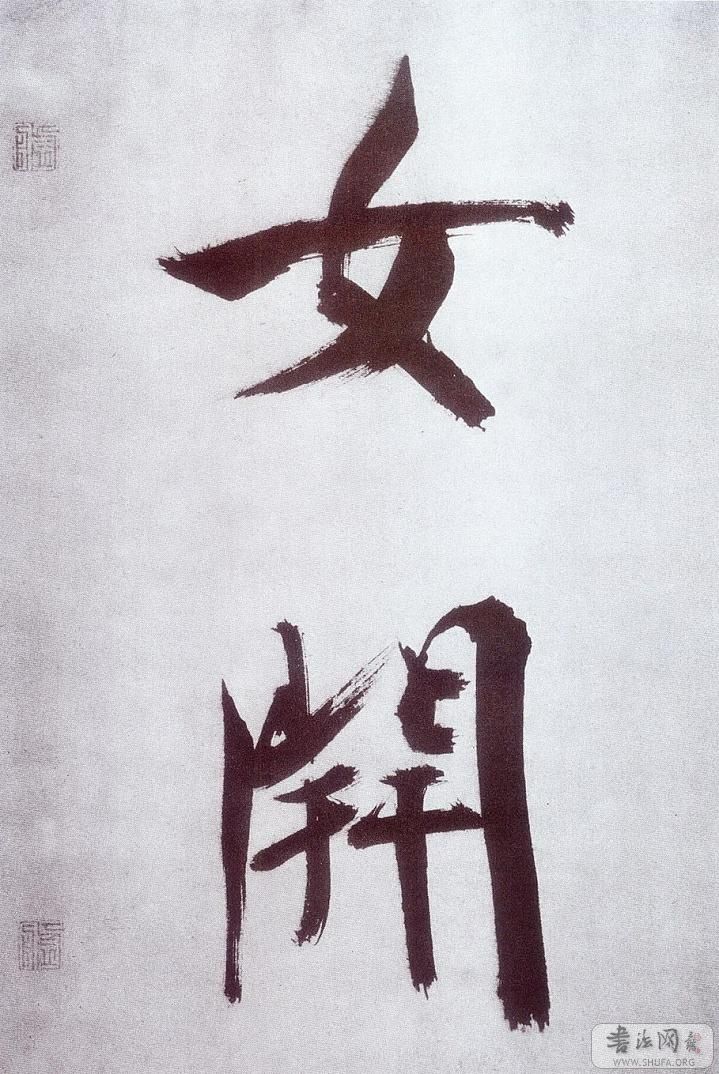 女
開
書法网
WWW.SHUFA.ORG